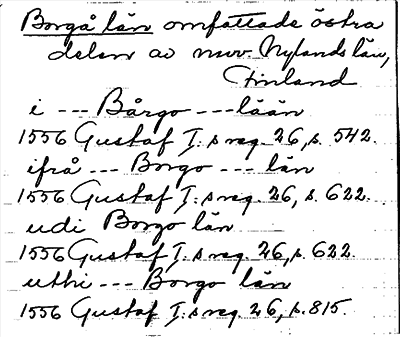 Borgå län omfattade östra
delen av nuv. Nylands län,
Finland
i --- Bårgo --- lään
1556 Gustaf I:s reg. 26, s. 542.
ifrå --- Borgo --- län
1556 Gustaf I:s reg. 26, s. 622.
udi Borgo län
1556 Gustaf I:s reg. 26, s. 622.
uthi --- Borgo län
1556 Gustaf I:s reg. 26, s. 815.